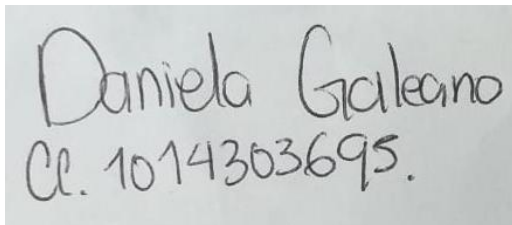 Daniela Galeano
CC. 1014303695.